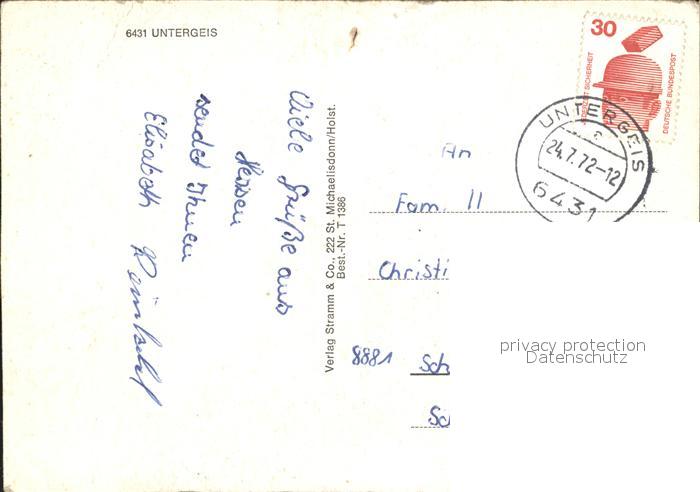 6431 UNTERGEIS
Viele Grüße aus
Hessen
sendet Ihnen
Elisabeth
Verlag Stramm & Co., 222 St. Michaelisdonn/Holst.
Best.-Nr. T 1386
30
JEDERZEIT SICHERHEIT
DEUTSCHE BUNDESPOST
UNTERGEIS
c
24.7.72-12
6431
An
Fam. II
Christi
8881 Sch
Sc
privacy protection
Datenschutz